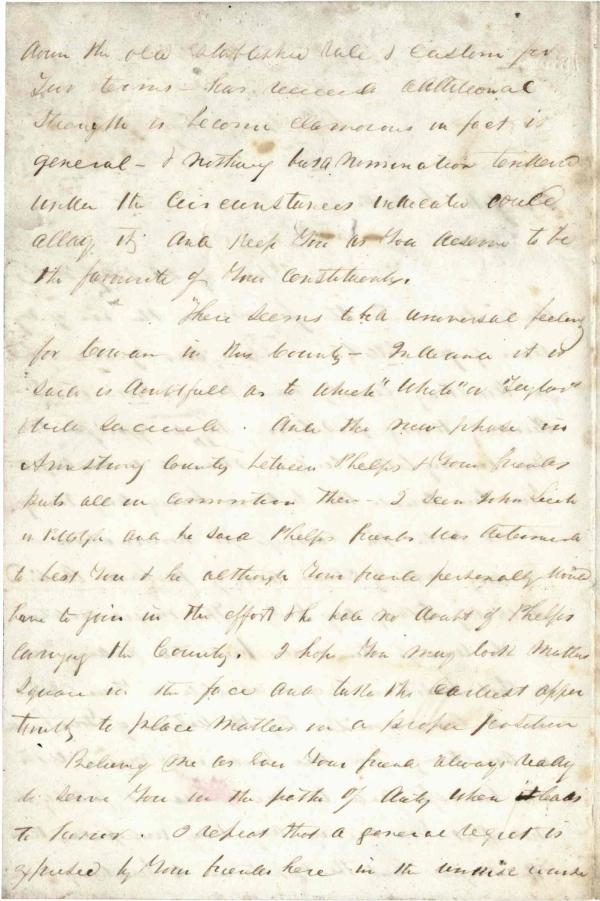 down the old established rule & custom for
Two terms - has received additional
strength is become clamorous in fact is
general - & nothing but a nomination tendered
under the circumstances indicated could
allay it, and keep You as You deserve to be
the favourite of Your Constituents.
There seems to be a universal feeling
for Cowan in this County - Indiana it is
said is doubtfull as to which "White" or "Taylor"
will succeed. And the new phase in
Armstrong County between Phelps & Your friends
puts all in commotion there - I seen John Leech
in and he said Phelps friends was determined
to beat You & he although Your friend personally would
have to join in the effort & he had no doubt of Phelps
carrying the County. I hope You may look Matters
square in the face and take the earliest oppor
tunity to place Matters in a proper position
Believing me as ever Your friend always ready
to serve You in the path of duty when it leads
to honor. I repeat that a general regret is
expressed by Your friends here in the unwise